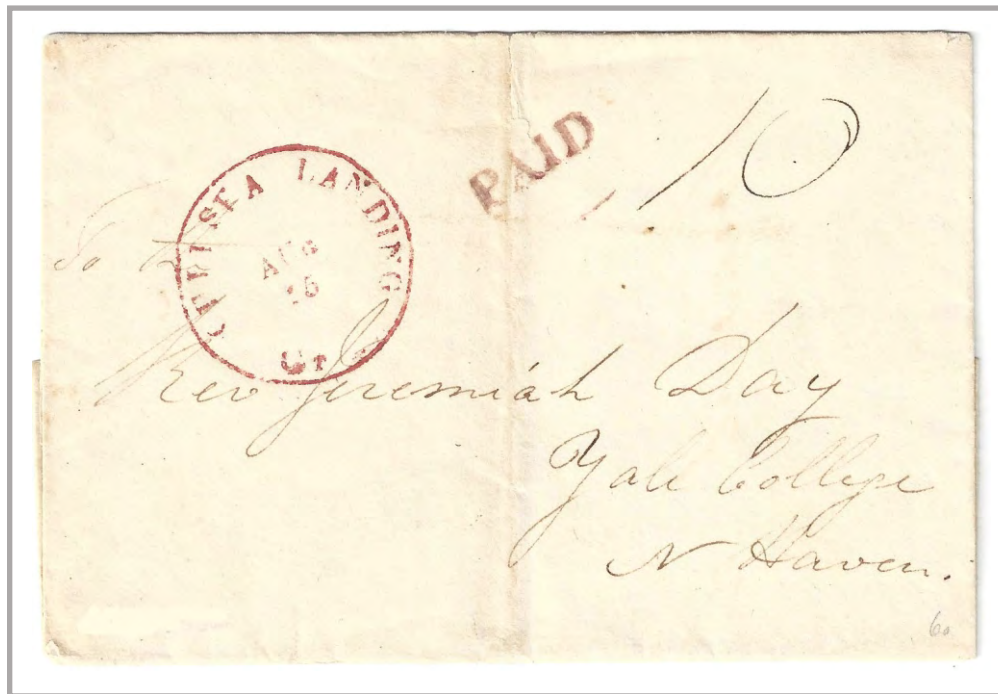 CHELSEA LANDING
AUG
CT
PAID
10
To
Rev Jeremiah Day
Yale College
N Haven.
60